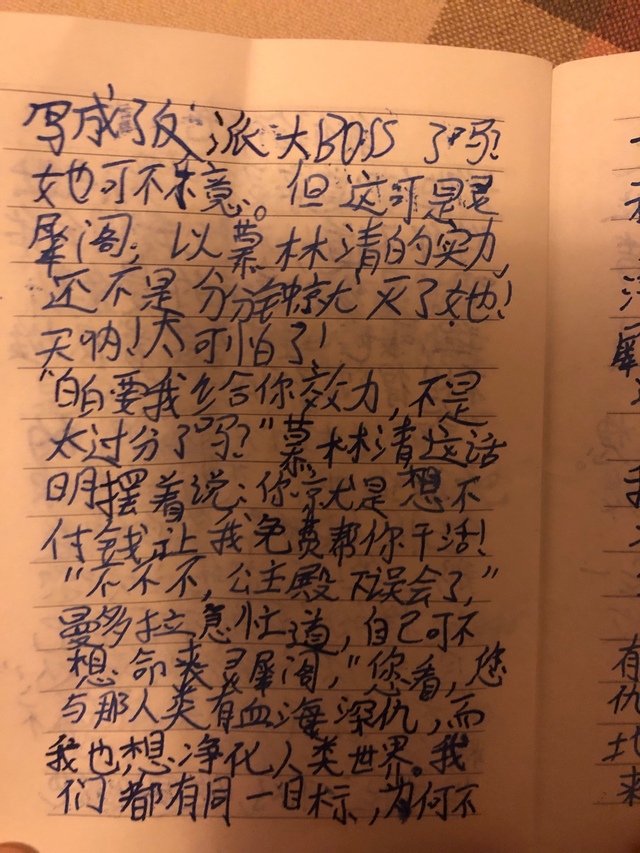 写成了反派大BOSS了吗?
她可不乐意。但这可是灵
犀阁,以慕林清的实力,
还不是分分钟就灭了她!
天呐!太可怕了!
"白白要我给你效力,不是
太过分了吗?"慕林清这话
明摆着说:你就是想不
付钱,让我免费帮你干活!
"不不不,公主殿下误会了,"
曼多拉急忙道,自己可不
想命丧灵犀阁,"您看,您
与那人类有血海深仇,而
我也想净化人类世界。我
们都有同一目标,为何不
有
仇
地
来